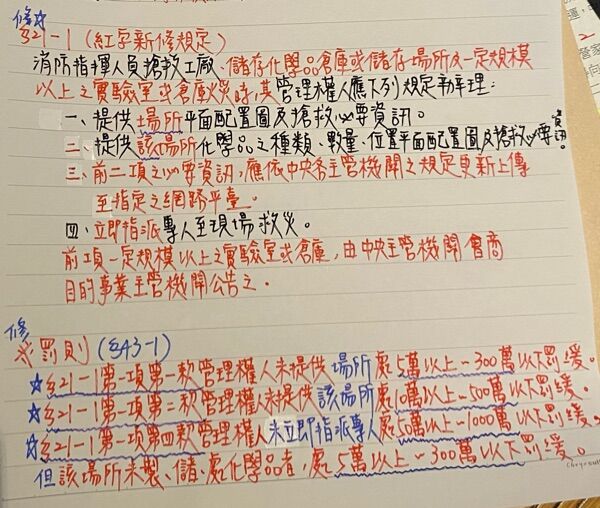 修
§21-1 (紅字新修規定)
消防指揮人員搶救工廠、儲存化學品倉庫或儲存場所及一定規模
以上之實驗室或倉庫火災時,其管理權人應下列規定辦理:
一、提供場所平面配置圖及搶救必要資訊。
二、提供該場所化學品之種類、數量、位置平面配置圖及搶救必要資訊。
三、前二項之必要資訊,應依中央各主管機關之規定更新上傳
至指定之網路平臺。
四、立即指派專人至現場救災。
前項一定規模以上之實驗室或倉庫,由中央主管機關會商
目的事業主管機關公告之。
修
罰則(§43-1)
☆§21-1第一項第一款管理權人未提供場所處5萬以上~300萬以下罰緩。
☆§21-1第一項第二款管理權人未提供該場所處10萬以上~500萬以下罰緩。
☆§21-1第一項第四款管理權人未立即指派專人處50萬以上~1000萬以下罰緩。
但該場所未製、儲、處化學品者,處5萬以上~300萬以下罰緩。